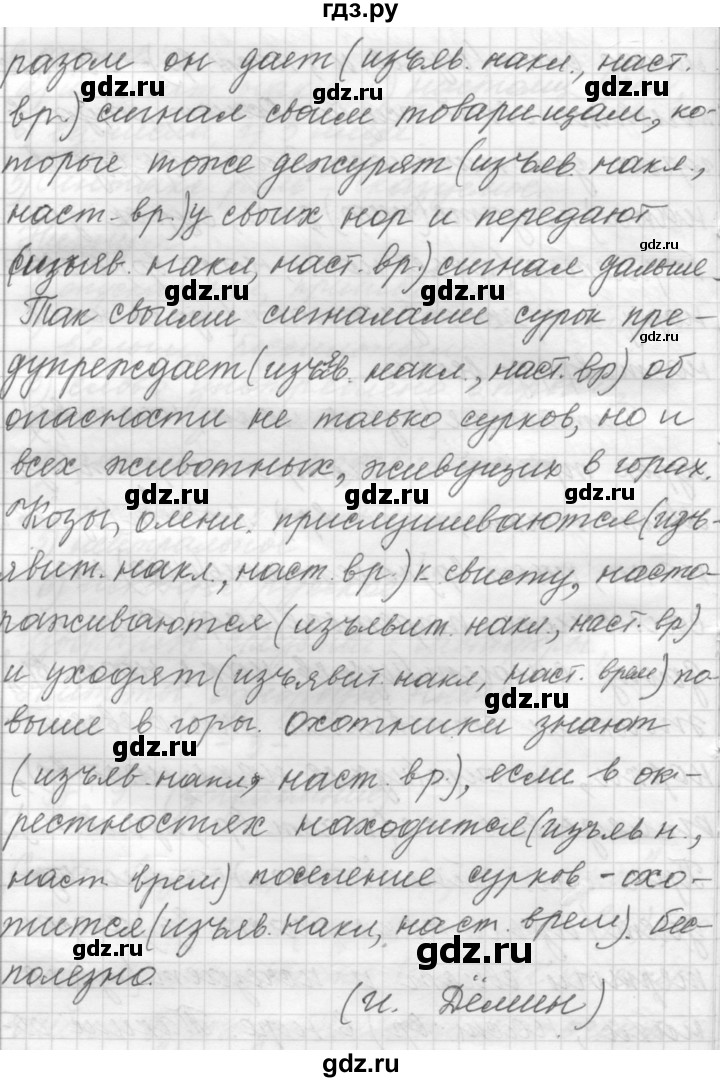 гдз.ру
разом он дает (изъяв. накл., наст.
вр.) сигнал своим товарищам, ко-
торые тоже дежурят (изъяв. накл.,
наст. вр.) у своих нор и передают
(изъяв. накл, наст. вр.) сигнал дальше.
Так своими сигналами сурок пре-
дупреждает (изъяв. накл., наст. вр) об
опасности не только сурков, но и
всех животных, живущих в горах.
Козы, олени прислушиваются (изъ-
явит. накл., наст. вр.) к свисту, насто-
раживаются (изъявит. накл., наст. вр)
и уходят (изъявит. накл, наст. врем) по-
выше в горы. Охотники знают
(изъяв. накл, наст. вр.), если в ок-
рестностях находится (изъяв н.,
наст. врем) поселение сурков - охо-
тится (изъяв. накл, наст. врем). бес-
полезно.
(И. Дёмин)
gdz.ru